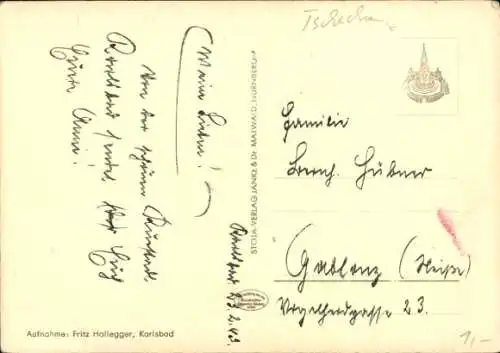 Tschech
Meine Lieben!
Von der schönen Kurstadt
Karlsbad sendet Euch
Eure Anni!
Karlsbad 23.2.43.
STOJA-VERLAG JANKE & Dr. MAIWALD, NÜRNBERG
Familie
Bernh. Hübner
Gablenz (Neiße)
23.
Aufnahme: Fritz Hollegger, Karlsbad
1,-